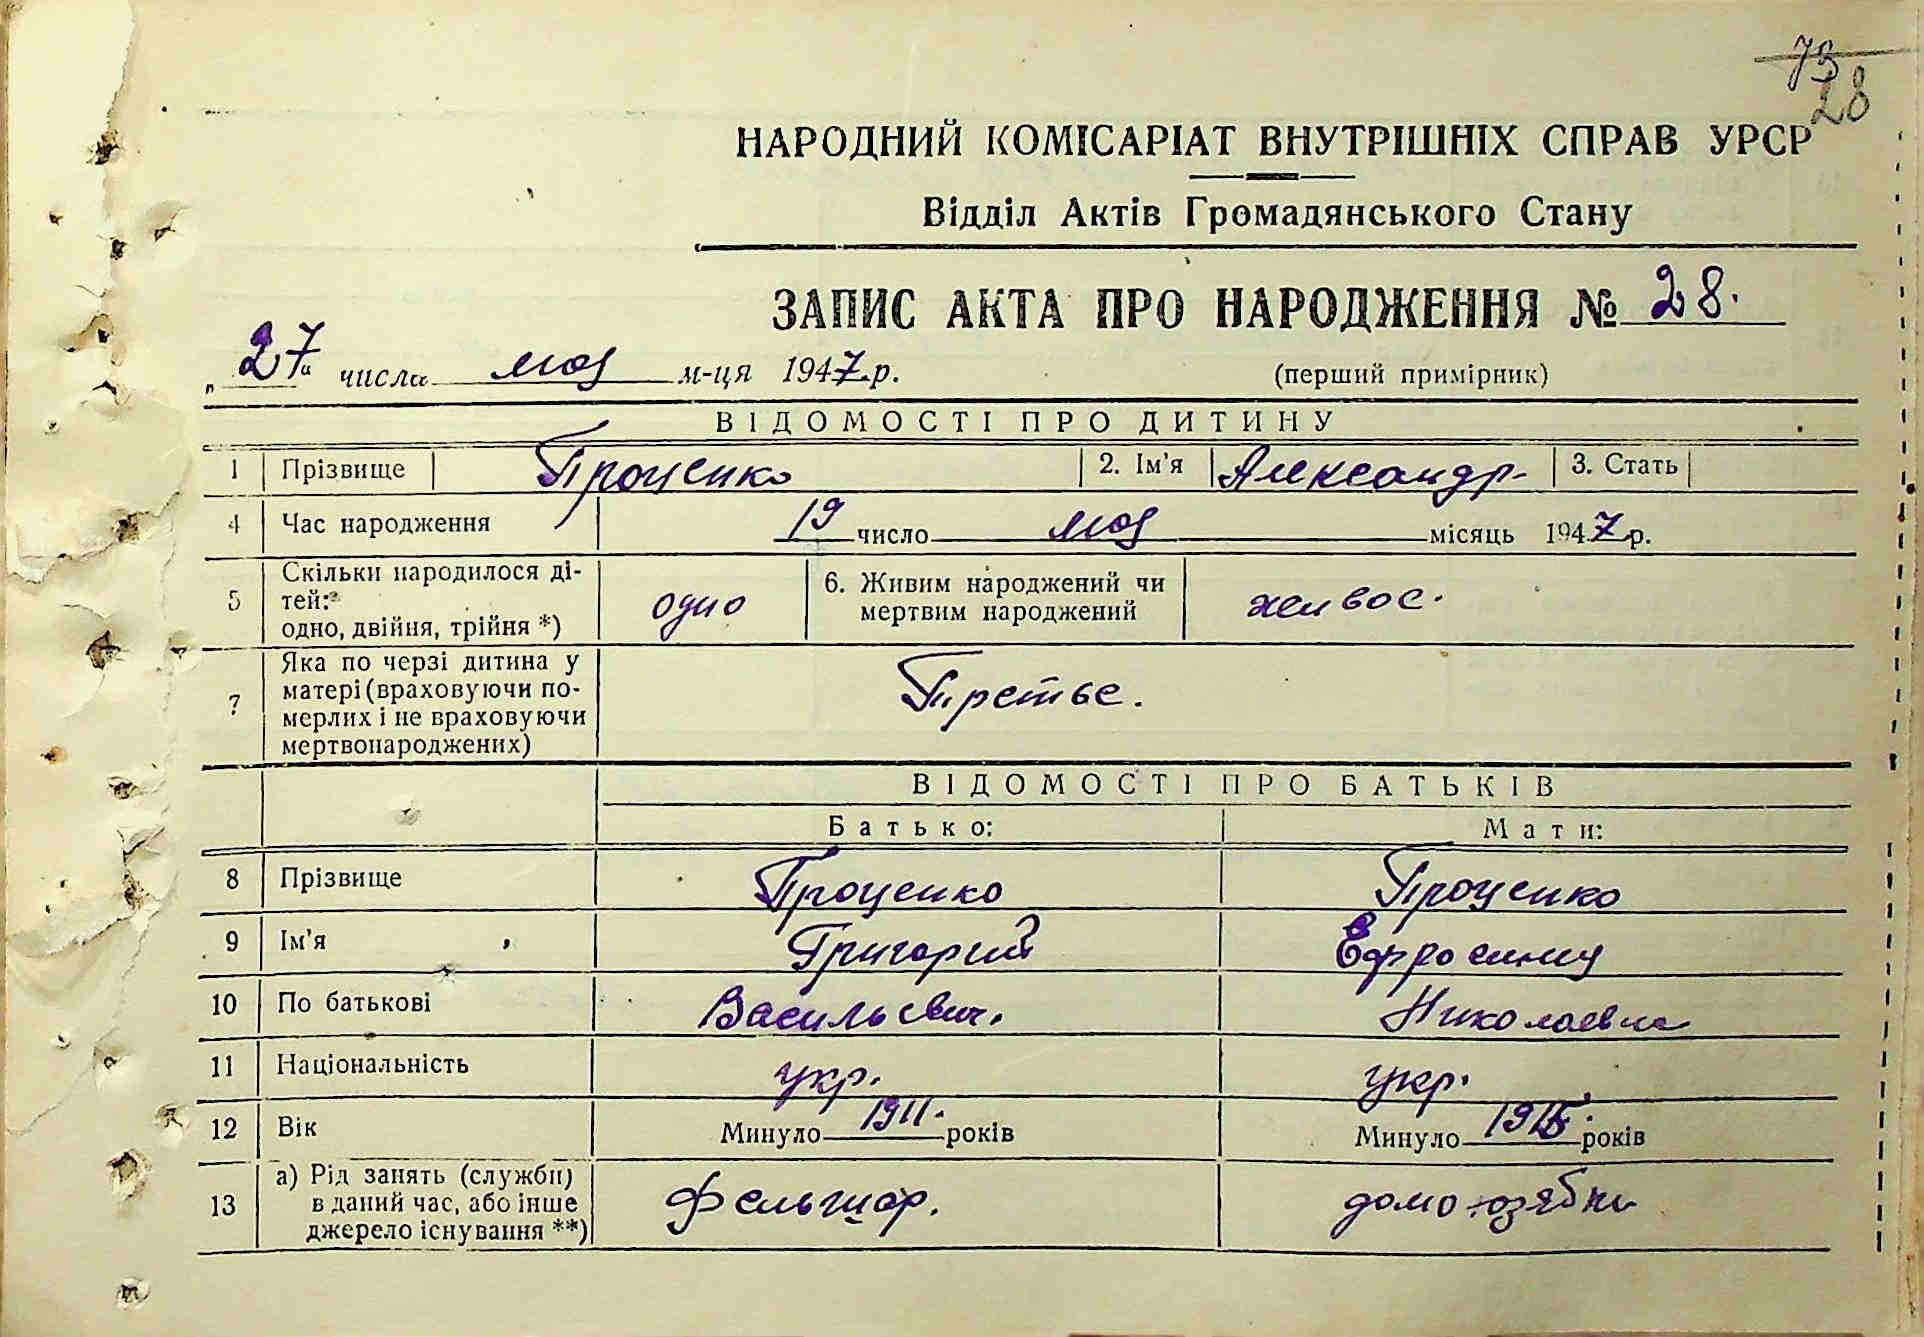 73
28
НАРОДНИЙ КОМІСАРІАТ ВНУТРІШНІХ СПРАВ УРСР
Відділ Актів Громадянського Стану
ЗАПИС АКТА ПРО НАРОДЖЕННЯ № 28.
„27“ числа мая м-ця 1947 р.
(перший примірник)
ВІДОМОСТІ ПРО ДИТИНУ
1 Прізвище Проценко 2. Ім'я Александр. 3. Стать
4 Час народження 19 число мая місяць 1947 р.
5 Скільки народилося ді-
тей:
одно, двійня, трійня *)
одно
6. Живим народжений чи
мертвим народжений
живое.
7 Яка по черзі дитина у
матері (враховуючи по-
мерлих і не враховуючи
мертвонароджених)
Третье.
ВІДОМОСТІ ПРО БАТЬКІВ
Батько: Мати:
8 Прізвище Проценко Проценко
9 Ім'я Григорий Ефросиния
10 По батькові Васильевич. Николаевна
11 Національність укр. укр.
12 Вік Минуло 1911. років Минуло років
13 а) Рід занять (служби)
в даний час, або інше
джерело існування **)
Фельшар. домохозяйка